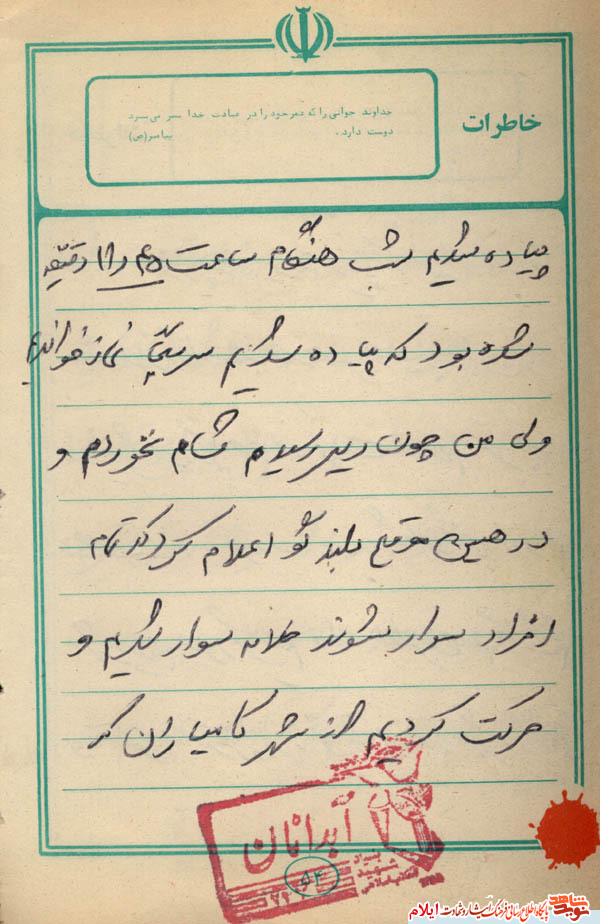 خاطرات
خداوند جوانی را که عمر خود را در عبادت خدا سر می‌برد
دوست دارد. پیامبر(ص)
پیاده شدیم شب هنگام ساعت ۴۵ و ۱۱ دقیقه
شده بود که پیاده شدیم نماز خواندیم
ولی من چون دیر رسیدم شام نخوردم و
در همین موقع بلندگو اعلام کرد که تمام
افراد سوار شوند خلاصه سوار شدیم و
حرکت کردیم از شهر کامیاران که
آبدانان
بنیاد
شهید
انقلاب اسلامی
۵۴
نوید شاهد
ایلام